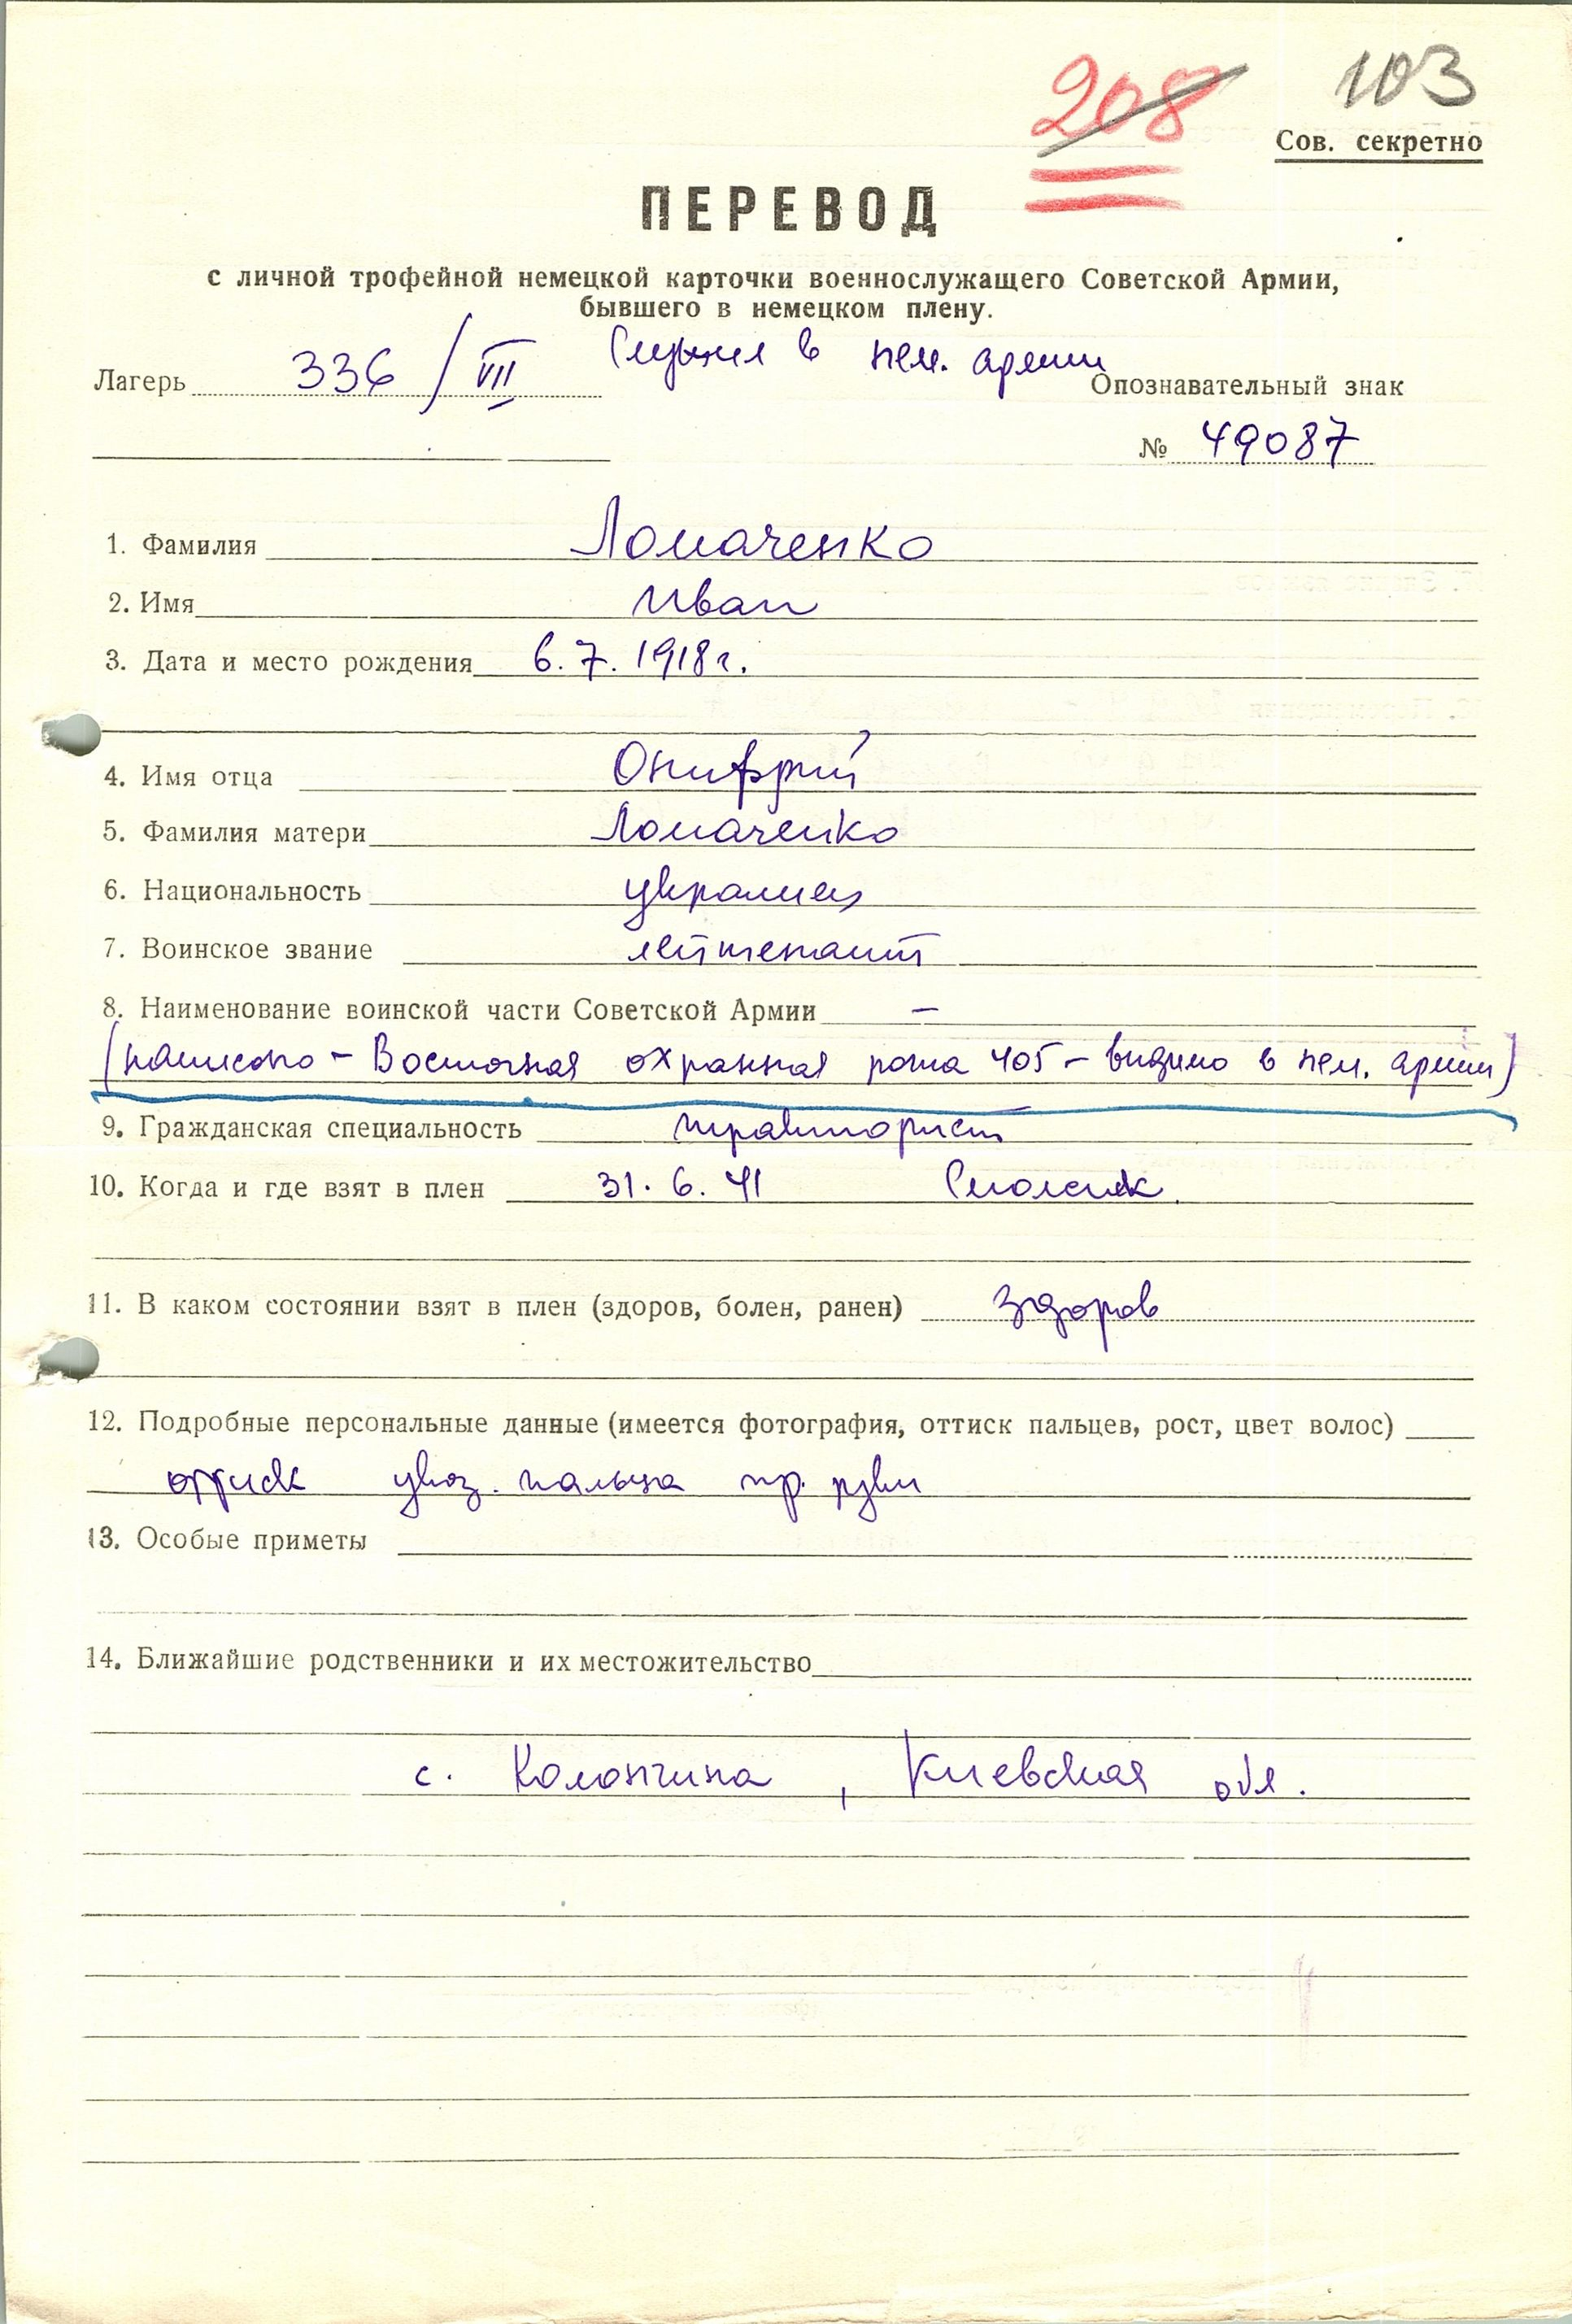 208 103
Сов. секретно
ПЕРЕВОД
с личной трофейной немецкой карточки военнослужащего Советской Армии,
бывшего в немецком плену.
Служил в нем. армии
Лагерь 336 / VII Опознавательный знак
№ 49087
1. Фамилия Ломаченко
2. Имя Иван
3. Дата и место рождения 6.7.1918г.
4. Имя отца Онифрий
5. Фамилия матери Ломаченко
6. Национальность украинец
7. Воинское звание лейтенант
8. Наименование воинской части Советской Армии –
(написано – Восточная охранная рота 405 – видимо в нем. армии)
9. Гражданская специальность тракторист
10. Когда и где взят в плен 31.6.41 Смоленск
11. В каком состоянии взят в плен (здоров, болен, ранен) здоров
12. Подробные персональные данные (имеется фотография, оттиск пальцев, рост, цвет волос)
оттиск указ. пальца пр. руки
13. Особые приметы
14. Ближайшие родственники и их местожительство
с. Колончина, Киевская обл.